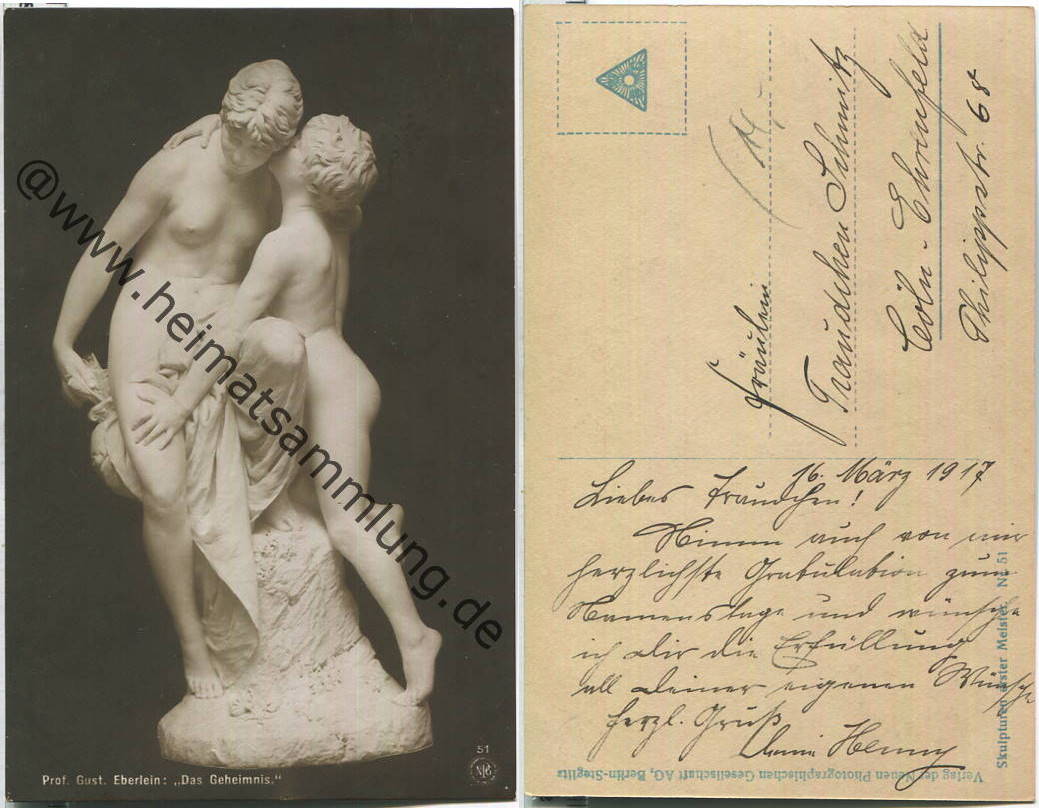 @www.heimatsammlung.de
51
NPG
Prof. Gust. Eberlein: „Das Geheimnis."
Fräulein
Traudchen Schmitz
Cöln-Ehrenfeld
Philippstr. 68
16. März 1917
Liebes Traudchen!
Nimm auch von mir
herzlichste Gratulation zum
Namenstage und wünsche
ich Dir die Erfüllung
all Deiner eigenen Wünsche
Herzl. Gruß
Henny
Verlag der Neuen Photographischen Gesellschaft AG, Berlin-Steglitz
Skulpturen erster Meister. Nr. 51